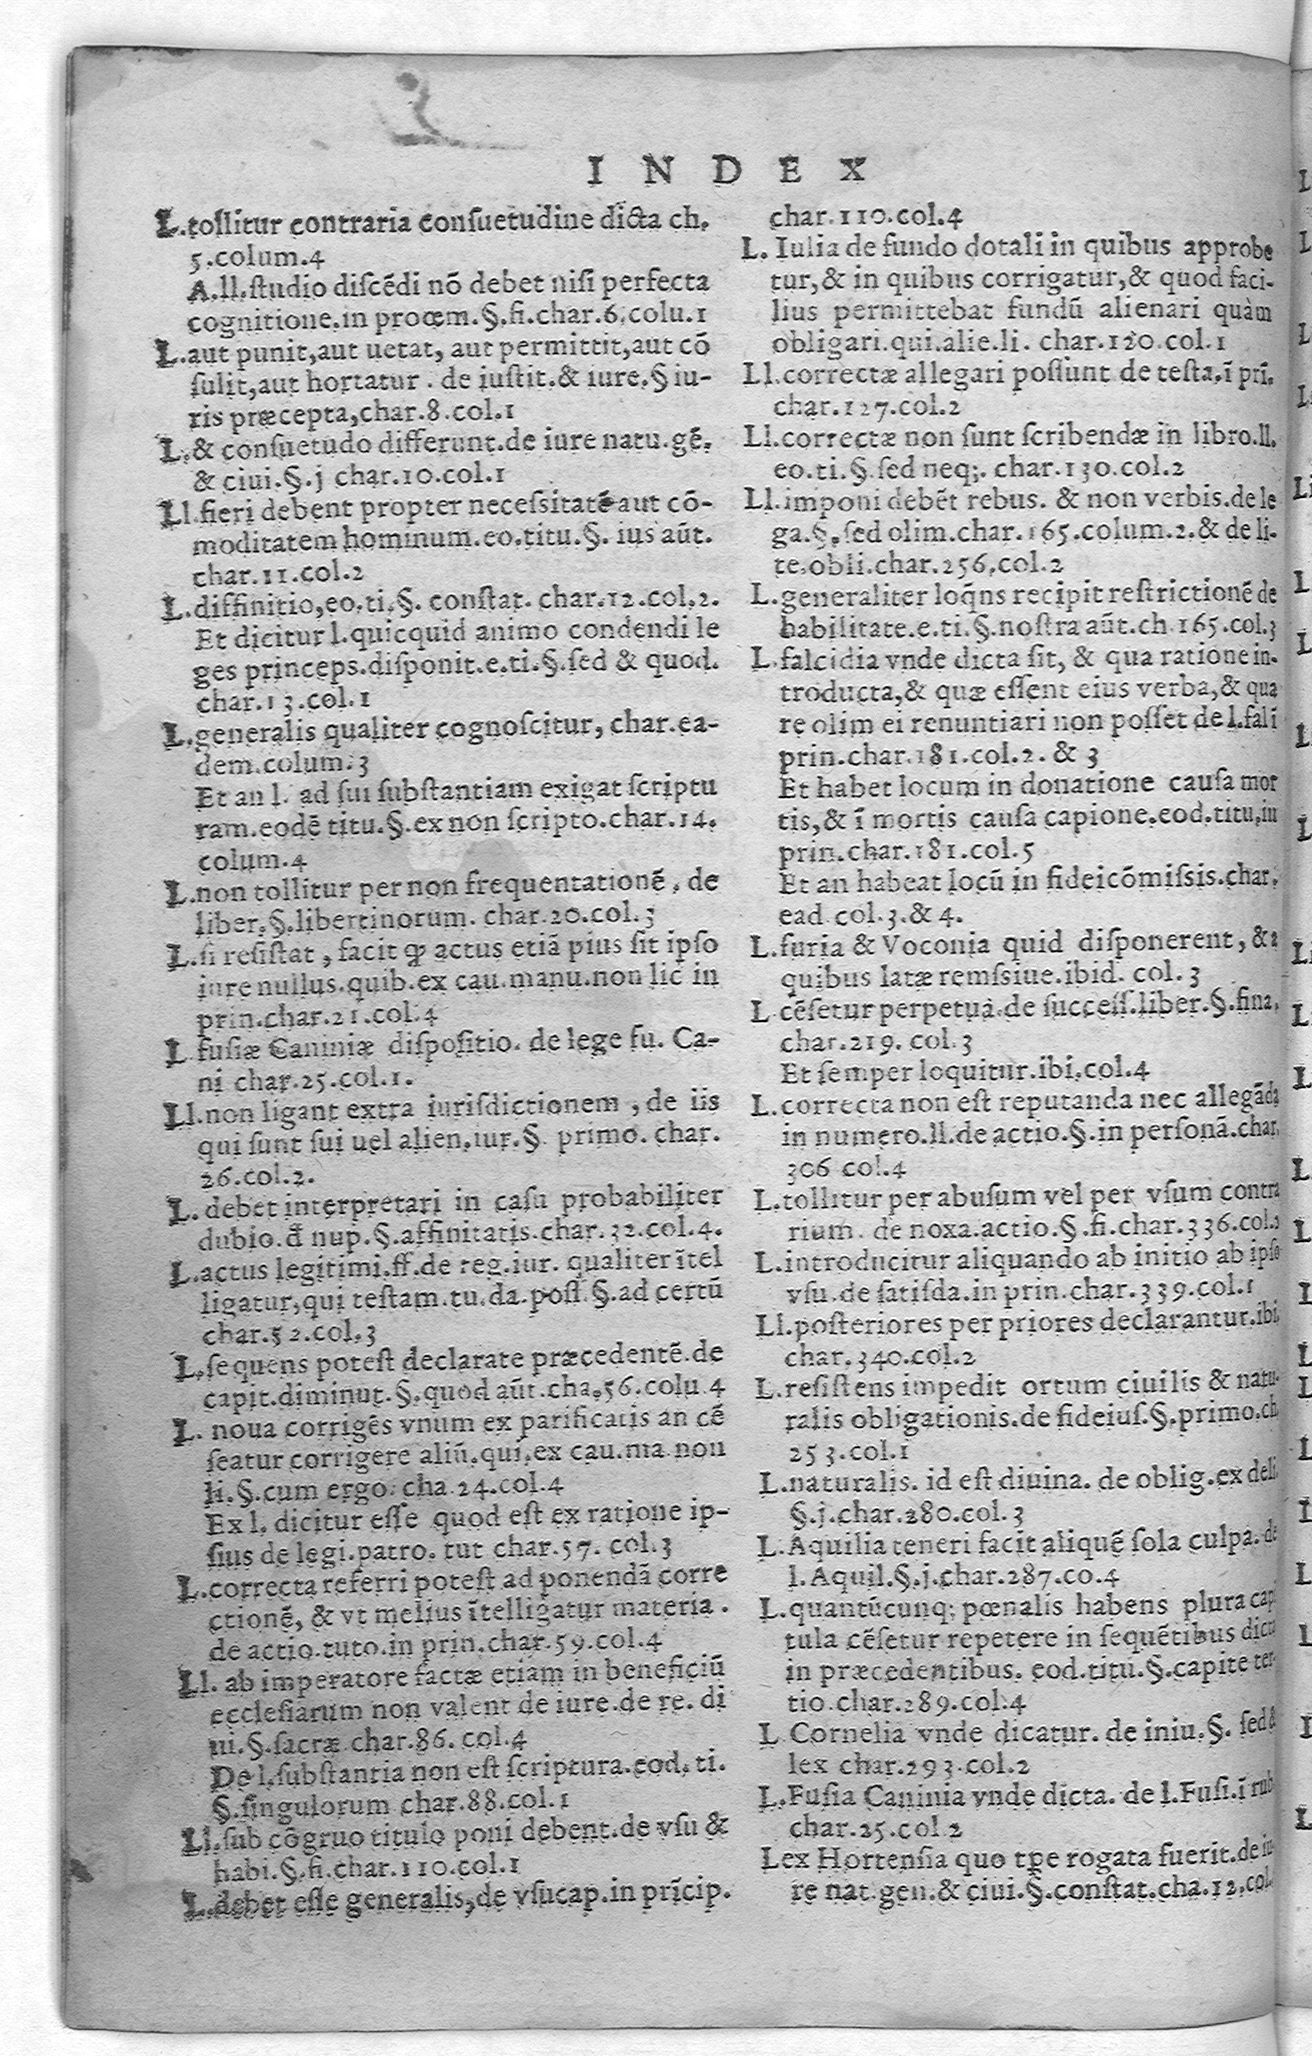 INDEX
L.tollitur contraria consuetudine dicta ch.
5.colum.4
A.ll.studio discēdi nō debet nisi perfecta
cognitione.in proœm.§.fi.char.6.colu.1
L.aut punit,aut uetat, aut permittit,aut cō
sulit,aut hortatur . de iustit.& iure.§ iu-
ris præcepta,char.8.col.1
L.& consuetudo differunt.de iure natu.gē.
& ciui.§.j char.10.col.1
Ll.fieri debent propter necessitatē aut cō-
moditatem hominum.eo.titu.§. ius aūt.
char.11.col.2
L.diffinitio,eo.ti.§. constat. char.12.col.2.
Et dicitur l.quicquid animo condendi le
ges princeps.disponit.e.ti.§.sed & quod.
char.13.col.1
L.generalis qualiter cognoscitur, char.ea-
dem.colum.3
Et an l. ad sui substantiam exigat scriptu
ram.eodē titu.§.ex non scripto.char.14.
colum.4
L.non tollitur per non frequentationē, de
liber.§.libertinorum. char.20.col.3
L.si resistat, facit ꝙ actus etiā pius sit ipso
iure nullus.quib.ex cau.manu.non lic in
prin.char.21.col.4
L fusiæ Caniniæ dispositio. de lege fu. Ca-
ni char.25.col.1.
Ll.non ligant extra iurisdictionem, de iis
qui sunt sui uel alien.iur.§ primo. char.
26.col.2.
L. debet interpretari in casu probabiliter
dubio.đ nup.§.affinitatis.char.32.col.4.
L.actus legitimi.ff.de reg.iur. qualiter ītel
ligatur,qui testam.tu.da.poss.§.ad certū
char.52.col.3
L.sequens potest declarate præcedentē.de
capit.diminut.§.quod aūt.cha.56.colu 4
L. noua corrigēs vnum ex parificatis an cē
seatur corrigere aliū.qui.ex cau.ma non
li.§.cum ergo. cha.24.col.4
Ex l. dicitur esse quod est ex ratione ip-
sius de legi.patro. tut char.57. col.3
L.correcta referri potest ad ponendā corre
ctionē, & vt melius ītelligatur materia.
de actio.tuto.in prin.char.59.col.4
Ll. ab imperatore factæ etiam in beneficiū
ecclesiarum non valent de iure.de re. di
ui.§.sacræ char.86. col.4
De l.substantia non est scriptura.eod. ti.
§.singulorum char.88.col.1
Ll.sub cōgruo titulo poni debent.de vsu &
habi.§.fi.char.110.col.1
L.debet esse generalis,de vsucap.in prīcip.
char.110.col.4
L. Iulia de fundo dotali in quibus approbe
tur,& in quibus corrigatur,& quod faci-
lius permittebat fundū alienari quàm
obligari.qui.alie.li. char.120.col.1
Ll.correctæ allegari possunt de testa.ī prī.
char.127.col.2
Ll.correctæ non sunt scribendæ in libro.ll.
eo.ti.§.sed neq;. char.130.col.2
Ll.imponi debēt rebus. & non verbis.de le
ga.§.sed olim.char.165.colum.2.& de li-
te.obli.char.256.col.2
L.generaliter loq̄ns recipit restrictionē de
habilitate.e.ti.§.nostra aūt.ch.165.col.3
L.falcidia vnde dicta sit, & qua ratione in-
troducta,& quæ essent eius verba,& qua
re olim ei renuntiari non posset de l.fal ī
prin.char.181.col.2. & 3
Et habet locum in donatione causa mor
tis,& ī mortis causa capione.eod.titu.in
prin.char.181.col.5
Et an habeat locū in fideicōmissis.char.
ead col.3.& 4.
L.furia & Voconia quid disponerent, & a
quibus latæ remssiue.ibid. col.3
L cēsetur perpetua.de success.liber.§.fina.
char.219. col.3
Et semper loquitur.ibi.col.4
L.correcta non est reputanda nec allegāda
in numero.ll.de actio.§.in personā.char.
306 col.4
L.tollitur per abusum vel per vsum contra
rium. de noxa.actio.§.fi.char.336.col.2
L.introducitur aliquando ab initio ab ipso
vsu.de satisda.in prin.char.339.col.1
Ll.posteriores per priores declarantur.ibi.
char.340.col.2
L.resistens impedit ortum ciuilis & natu-
ralis obligationis.de fideius.§.primo.ch.
253.col.1
L.naturalis. id est diuina. de oblig.ex deli.
§.j.char.280.col.3
L.Aquilia teneri facit aliquē sola culpa.de
l.Aquil.§.j.char.287.co.4
L.quantūcunq; pœnalis habens plura capi
tula cēsetur repetere in sequētibus dicta
in præcedentibus. eod.titu.§.capite ter-
tio char.289.col.4
L Cornelia vnde dicatur. de iniu.§. sed &
lex char.293.col.2
L.Fusia Caninia vnde dicta. de l.Fusi.ī rub.
char.25.col 2
Lex Hortensia quo tpe rogata fuerit.de iu-
re nat.gen.& ciui.§.constat.cha.12.col.